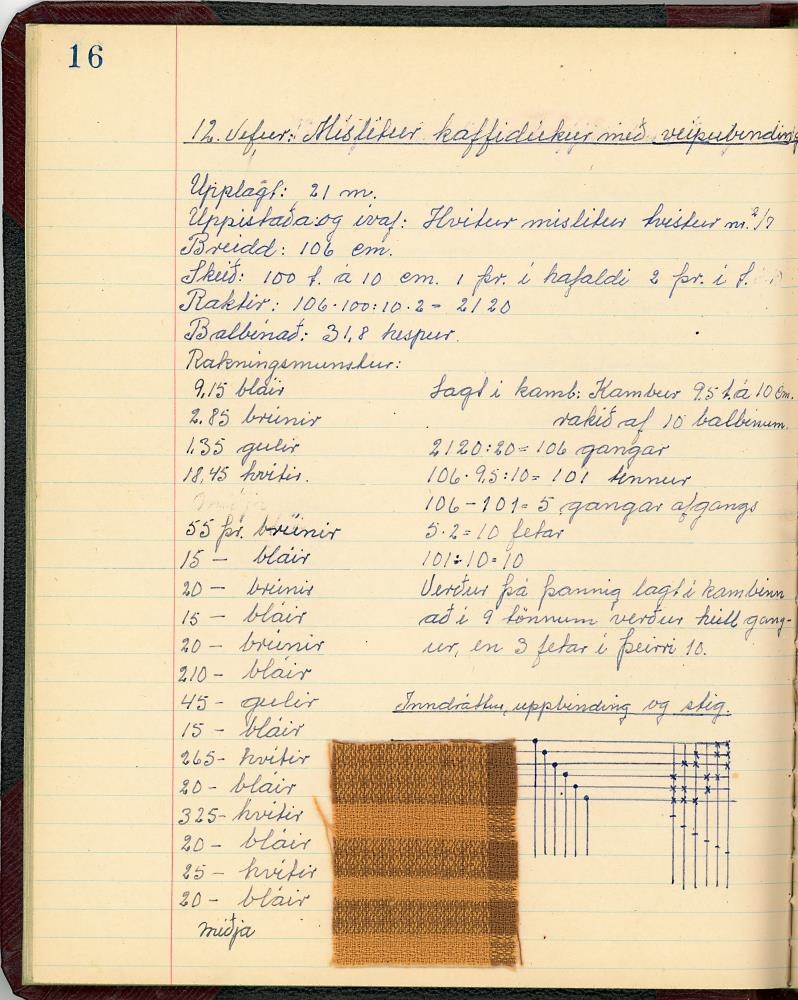 16
12. Vefur: Mislitur kaffidúkur með veipubinding
Upplagt: 21 m.
Uppistaða og ívaf: Hvítur mislitur tvistur nr. 2/7
Breidd: 106 cm.
Skeið: 100 t. á 10 cm. 1 þr. í hafaldi 2 þr. í t.
Raktir: 106·100:10·2 = 2120
Balbínað: 31,8 hespur.
Rakningsmunstur:
9,15 bláir
2.85 brúnir
1.35 gulir
18,45 hvítir.
55 þr. brúnir
15 — bláir
20 — brúnir
15 — bláir
20 — brúnir
210 — bláir
45 - gulir
15 - bláir
265 - hvítir
20 - bláir
325 - hvítir
20 - bláir
25 - hvítir
20 - bláir
miðja
Lagt í kamb: Kambur 9.5 t. á 10 cm.
rakið af 10 balbínum.
2120:20 = 106 gangar
106·9,5:10 = 101 tennur
106 - 101 = 5 gangar afgangs
5·2 = 10 fetar
101:10 = 10
Verður þá þannig lagt í kambinn
að í 9 tönnum verður heill gang-
ur, en 3 fetar í þeirri 10.
Inndráttur, uppbinding og stig.